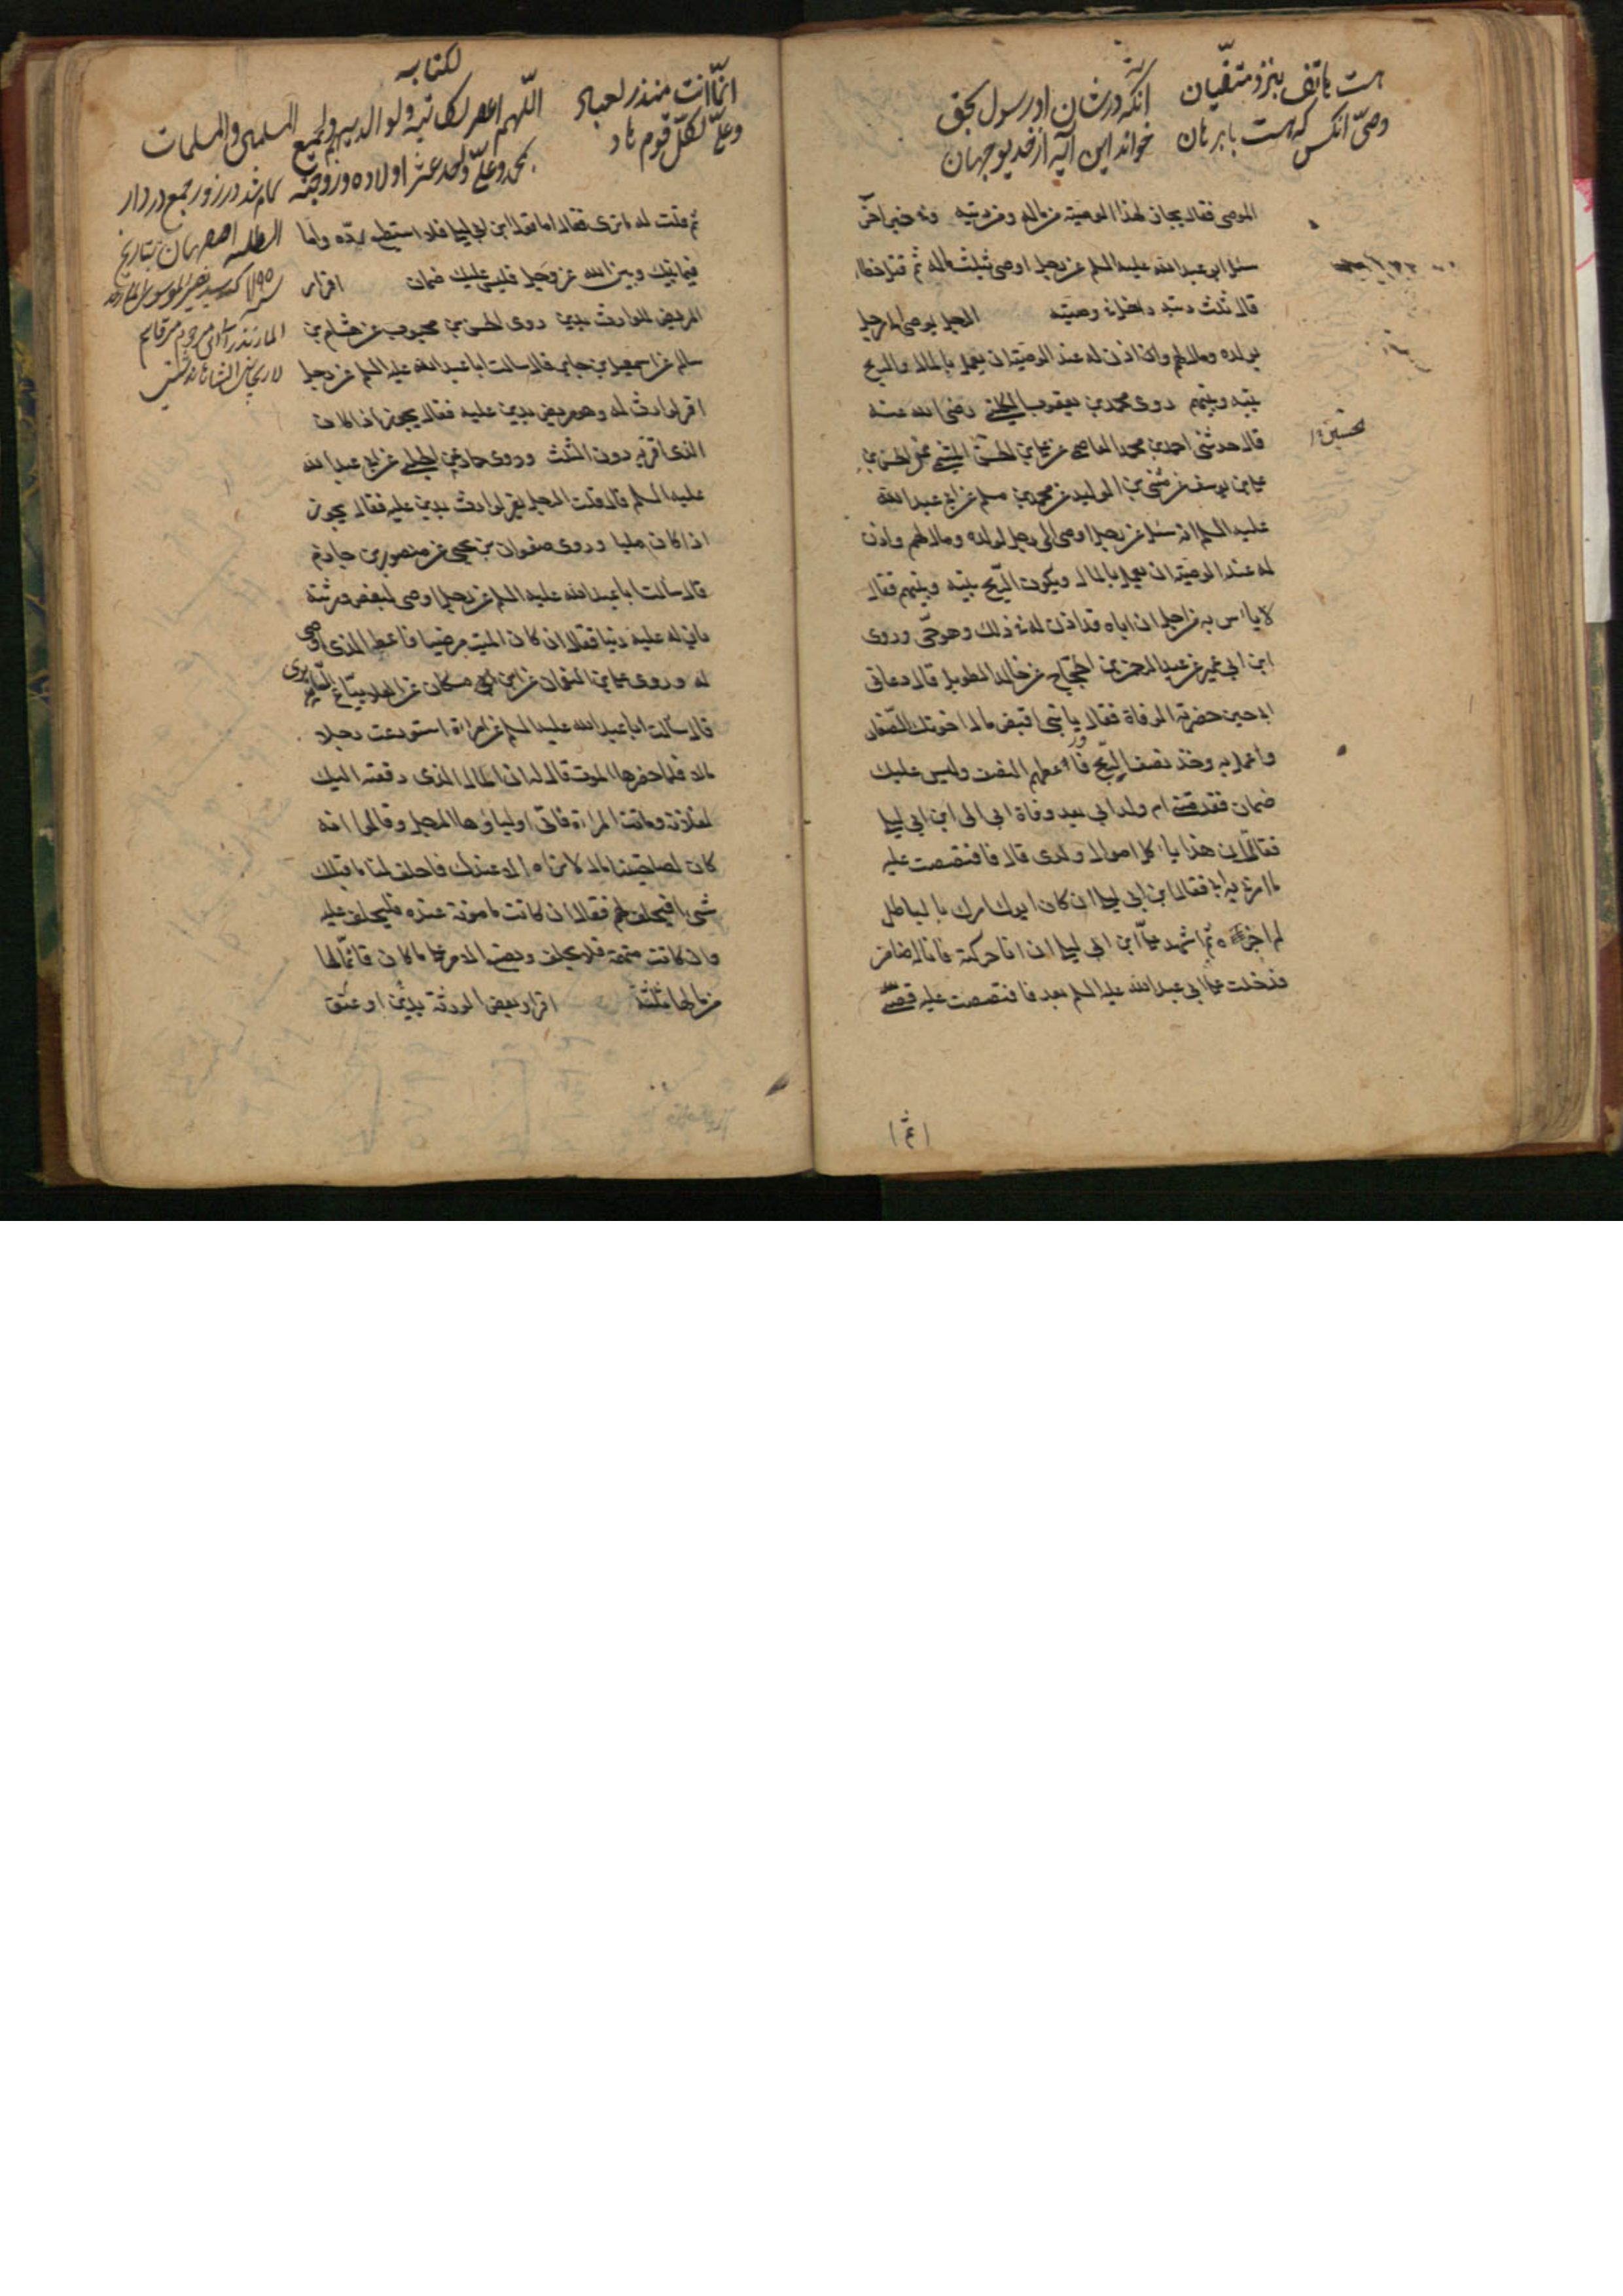 هست باتف بنزد متقیان
انکه در شان او رسول بحق
وصی انکس که هست با برهان
خواند این آیه از خدیو جهان
الموصى فقال يجاز لهذا الوصية من ماله ومن ديته وفى خبر آخر
سئل ابو عبد الله عليه السلم عن رجل اوصى بثلث ماله ثم قتل خطاء
قال ثلث ديته داخل فى وصيته الرجل يوصى الى رجل
بولده ومال لهم واذا اذن له عند الوصية ان يعمل بالمال والربح
بينه وبينهم روى محمد بن يعقوب الكلينى رضى الله عنه
قال حدثنى احمد بن محمد العاصمى عن على بن الحسن الميثمى عن الحسن بن
على بن يوسف عن مثنى بن الوليد عن محمد بن مسلم عن ابى عبد الله
عليه السلم انه سئل عن رجل اوصى الى رجل بولده ومال لهم واذن
له عند الوصية ان يعمل بالمال ويكون الربح بينه وبينهم فقال
لا باس به من اجل ان اباه قد اذن له فى ذلك وهو حى وروى
ابن ابى عمير عن عبد الرحمن بن الحجاج عن خالد الطويل قال دعانى
ابى حين حضرته الوفاة فقال يا بنى اقبض مال اخوتك الصغار
واعمل به وخذ نصف الربح واعطهم النصف وليس عليك
ضمان فقدمتنى ام ولد ابى بعد وفاة ابى الى ابن ابى ليلى
فقالت ان هذا ياكل اموال ولدى قال فاقتصصت عليه
ما امرنى به ابى فقال ابن ابى ليلى ان كان ابوك امرك بالباطل
لم اجزه ثم اشهد على ابن ابى ليلى ان انا حركته فانا له ضامن
فدخلت على ابى عبد الله عليه السلم بعد فاقتصصت عليه قصتى
ثم
انما انت منذر لعباد
وعلى لكل قوم هاد
لكتابه
اللهم اغفر لكاتبه ولوالديه ولجميع المسلمين والمسلمات
بمحمد وعلى واحد عشر اولاده وزوجته
ثم قلت له ما ترى فقال اما قول ابن ابى ليلى فلا استطيع رده واما
فيما بينك وبين الله عز وجل فليس عليك ضمان اقرار
المريض للوارث بدين روى الحسن بن محبوب عن هشام بن
سالم عن اسمعيل بن جابر قال سالت ابا عبد الله عليه السلم عن رجل
اقر لوارث له وهو مريض بدين عليه فقال يجوز اذا كان
الذى اقر به دون الثلث وروى حماد عن الحلبى عن ابى عبد الله
عليه السلم قال قلت الرجل يقر لوارث بدين عليه فقال يجوز
اذا كان مليا وروى صفوان بن يحيى عن منصور بن حازم
قال سألت ابا عبد الله عليه السلم عن رجل اوصى لبعض ورثته
بان له عليه دينا فقال ان كان الميت مرضيا فاعط الذى اوصى
له وروى على بن النعمان عن ابن مسكان عن العلا بياع السابرى
قال سألت ابا عبد الله عليه السلم عن امراة استودعت رجلا
مالا فلما حضرها الموت قال له ان المال الذى دفعته اليك
لفلانة وماتت المراة فاتى اولياؤها الرجل وقالوا انه
كان لصاحبتنا مال لا نراه الا عندك فاحلف لنا ما قبلك
شى افيحلف لهم فقال ان كانت مامونة عنده فليحلف عليه
وان كانت متهمة فلا يحلف ويضع الامر على ما كان فانما لها
من مالها ثلثه اقرار بعض الورثة بدين او عتق